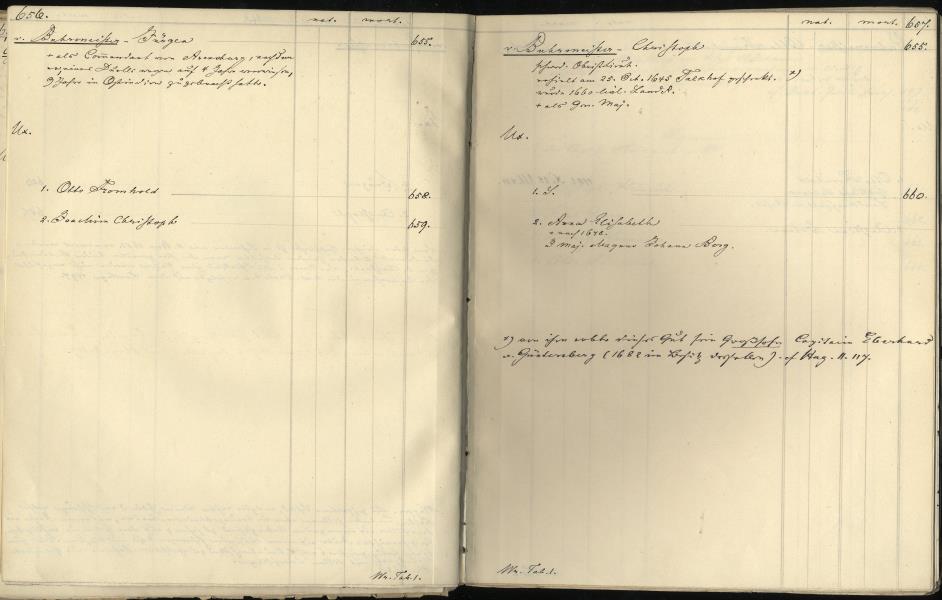 656.
nat. mort.
v. Buhrmeister - Jürgen
655.
+ als Commendant von Arensburg, nachdem
er eines Duells wegen auf 4 Jahr verwiesen,
3 Jahre in Ostindien zugebracht hatte.
Ux.
1. Otto Fromhold
658.
2. Joachim Christoph
659.
Wr. Tab. 1.
nat. mort. 657.
v. Buhrmeister - Christoph
655.
schwed. Obristlieut.
erhielt am 25. Oct. 1645 Falkhof geschenkt. x)
wurde 1660 livl. Landr.
+ als Gen. Maj.
Ux.
1. S.
660.
2. Anna Elisabeth
1642.
Maj. Magnus Johann Borg.
x) von ihm erbte dieses Gut sein Großsohn Capitain Eberhard
v. Güntersberg (1682 im Besitz desselben). cf Hag. II. 117.
Wr. Tab. 1.